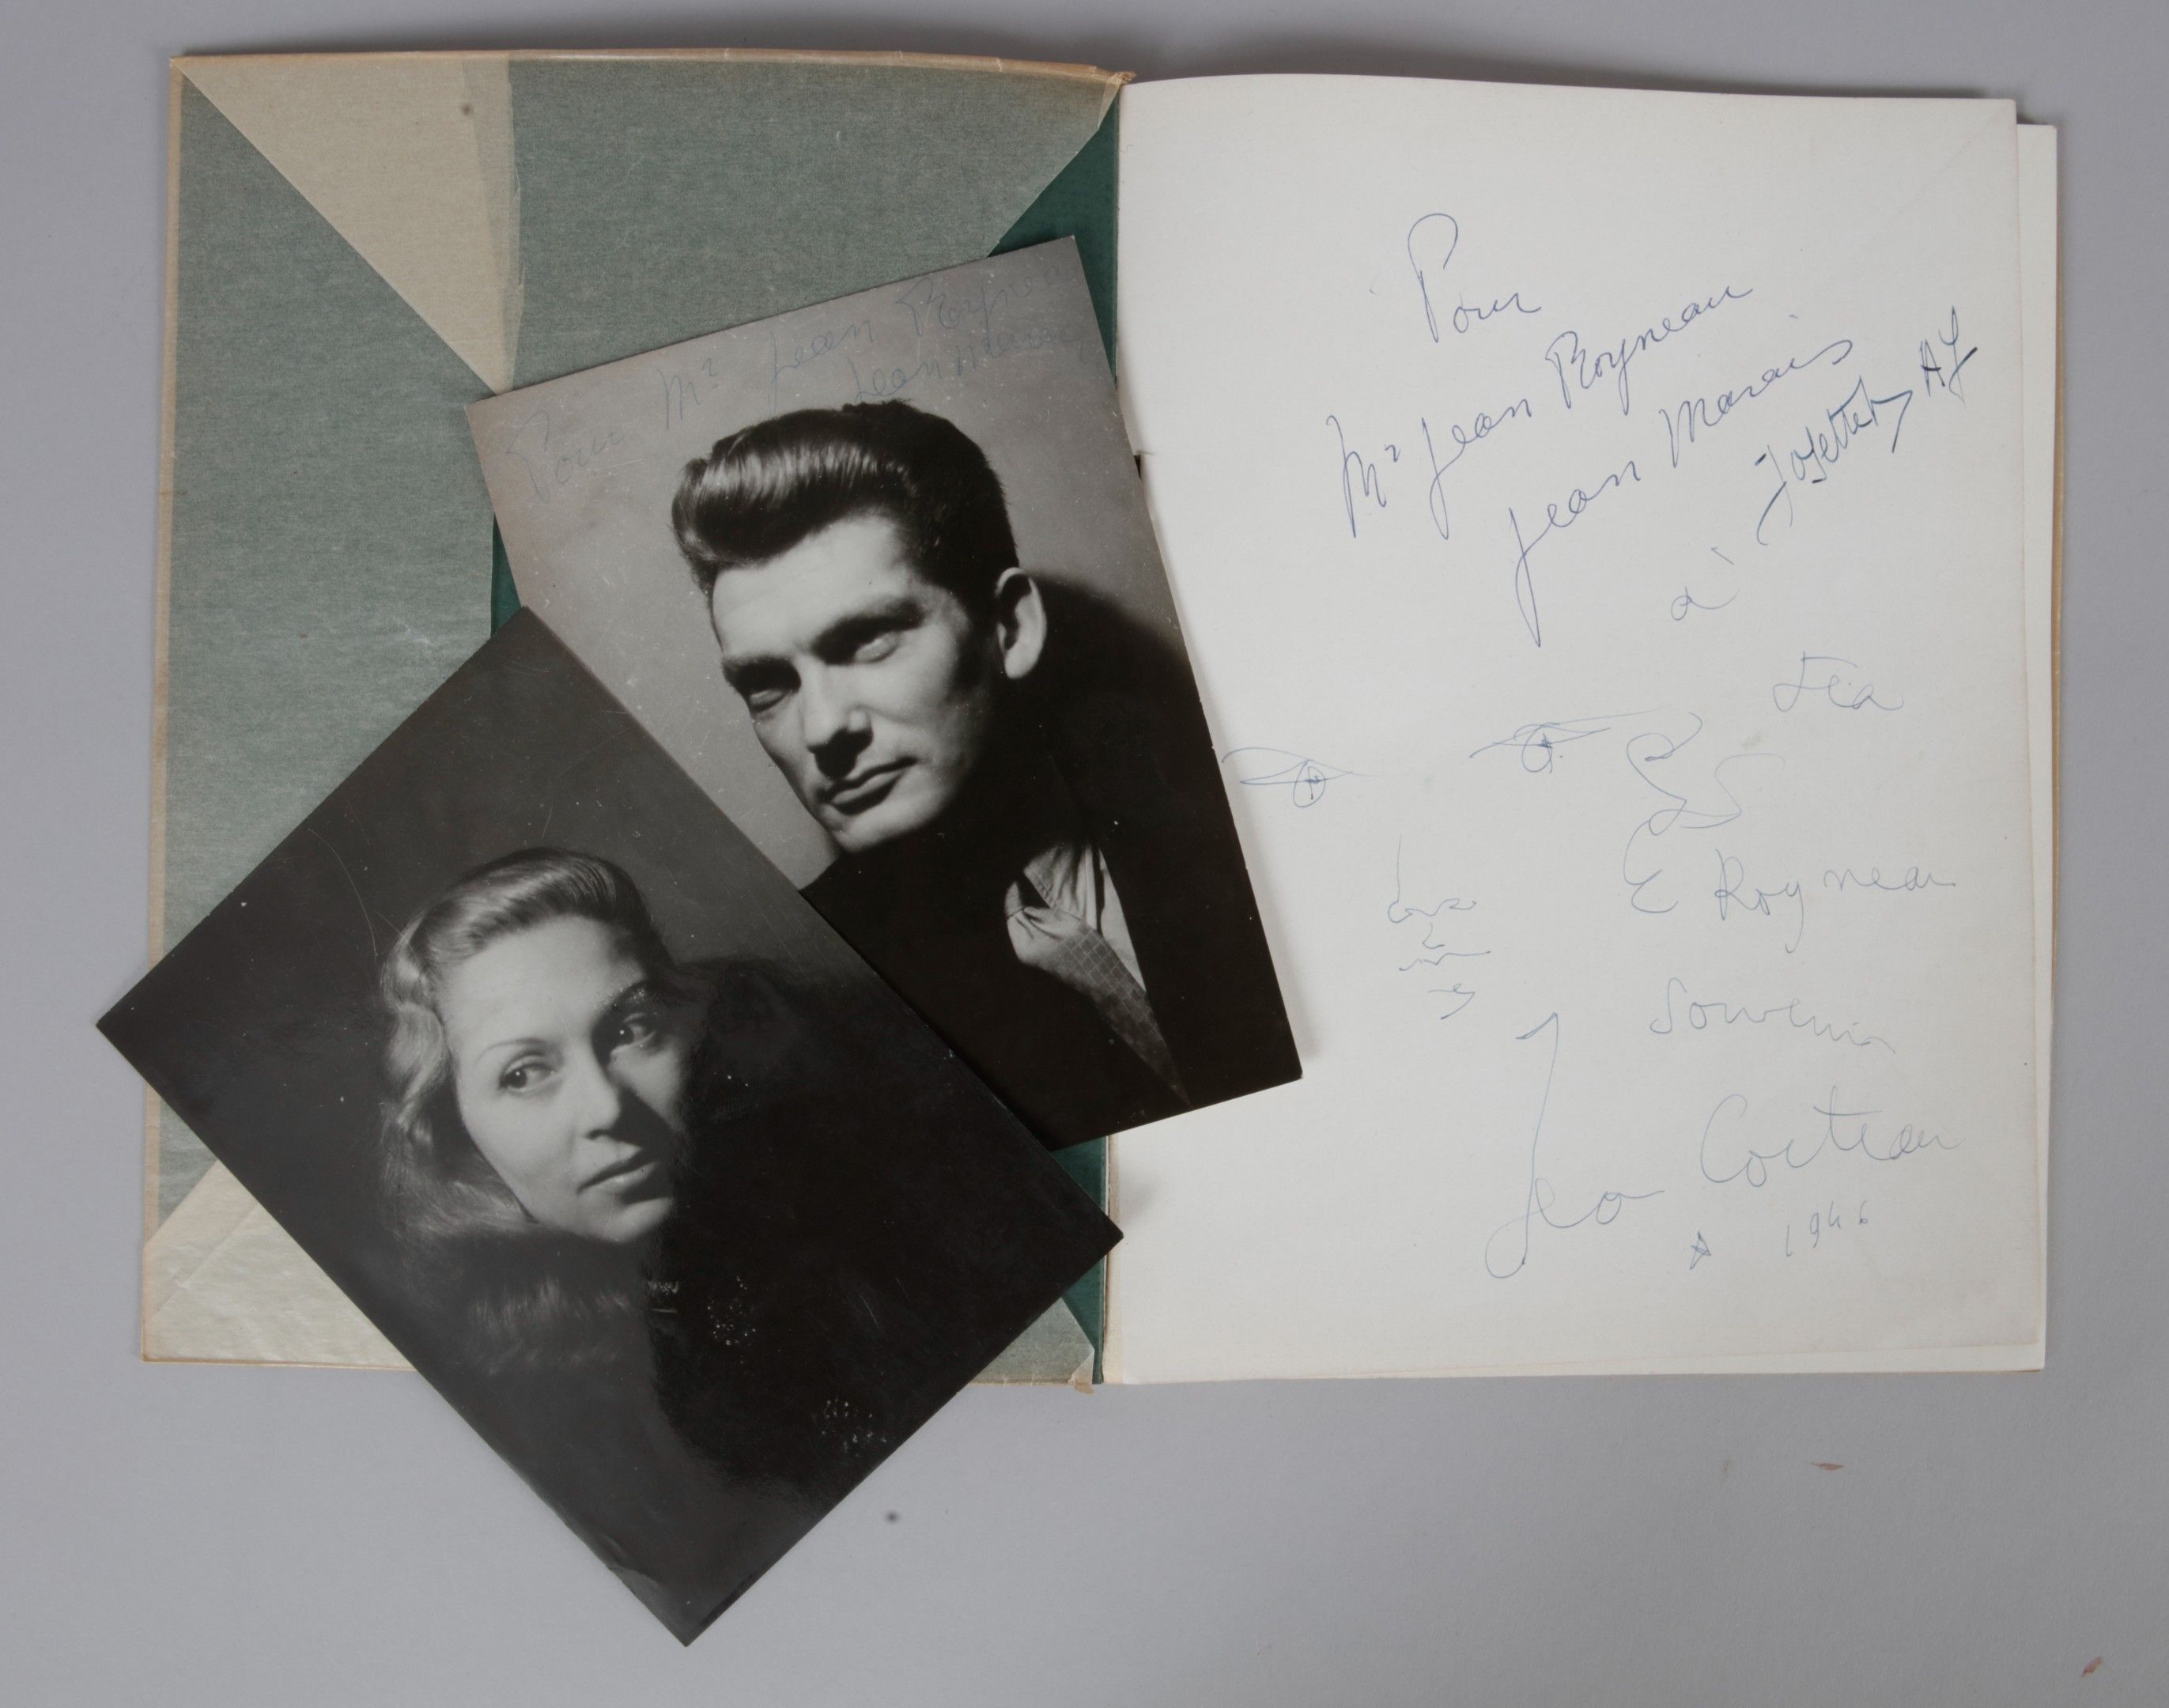 Pour Mr Jean Royneau
Jean Marais
Pour
Mr Jean Royneau
Jean Marais
Josette Day
à
Léa
E Royneau
Souvenir
Jean Cocteau
1946